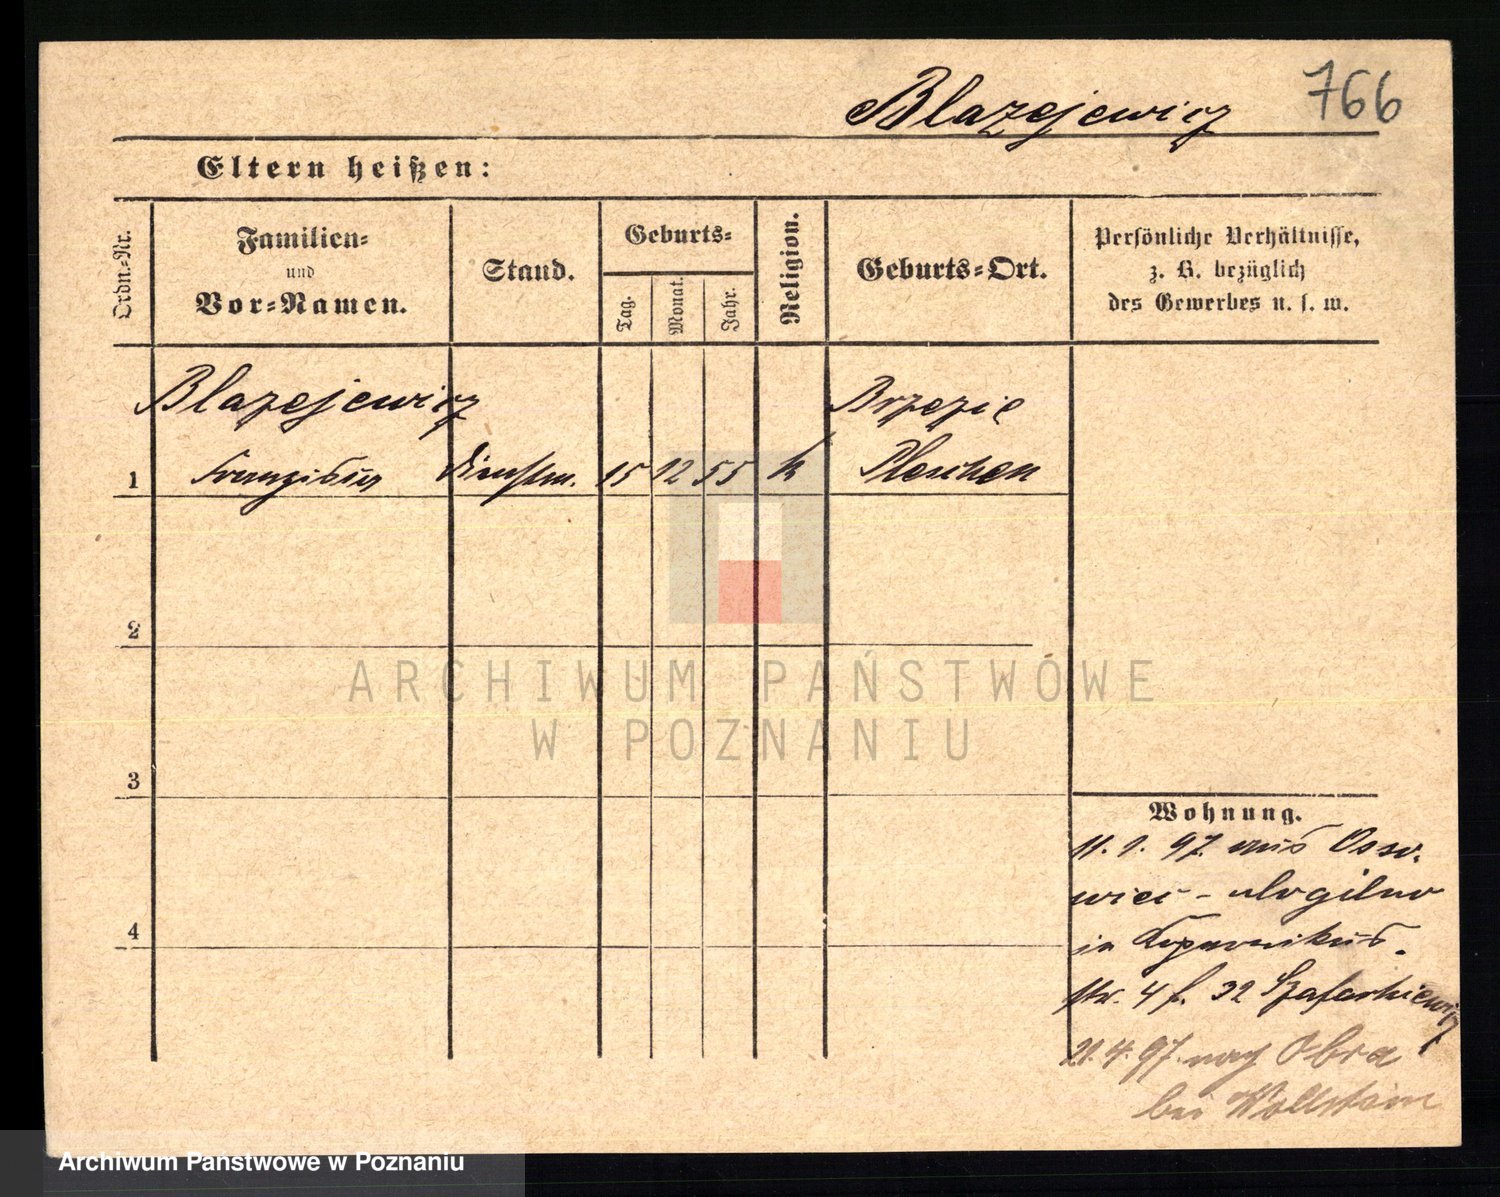 766
Blazejewicz
Eltern heißen:
Ordn.-Nr.
Familien-
und
Vor-Namen.
Stand.
Geburts-
Tag.
Monat.
Jahr.
Religion.
Geburts-Ort.
Persönliche Verhältnisse,
z. B. bezüglich
des Gewerbes u. s. w.
Blazejewicz
Brzezie
1 Franziskus Dienstm. 15 12 55 k Pleschen
2
3
4
Wohnung.
11. 1. 97. aus Osso-
wiec - Mogilno
in Kopernikus-
str. 4 f. 32 Szafarkiewicz
21. 4. 97. nach Obra
bei Wollstein
ARCHIWUM PAŃSTWOWE
W POZNANIU
Archiwum Państwowe w Poznaniu